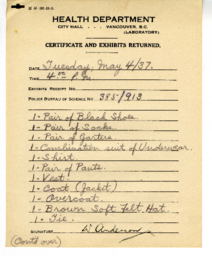 HEALTH DEPARTMENT
CITY HALL . . . VANCOUVER, B.C.
(LABORATORY)
CERTIFICATE AND EXHIBITS RETURNED.
DATE Tuesday, May 4/37.
TIME 4:00 P.M.
EXHIBITS RECEIPT NO.
POLICE BUREAU OF SCIENCE NO. 385/913
1 - Pair of Black Shoes
1 - Pair of Socks
1 - Pair of Garters
1 - Combination suit of Underwear.
1 - Shirt
1 - Pair of Pants.
1 - Vest
1 - Coat (Jacket)
1 - Overcoat.
1 - Brown Soft Felt Hat.
1 - Tie.
SIGNATURE Anderson
(Cont'd over)